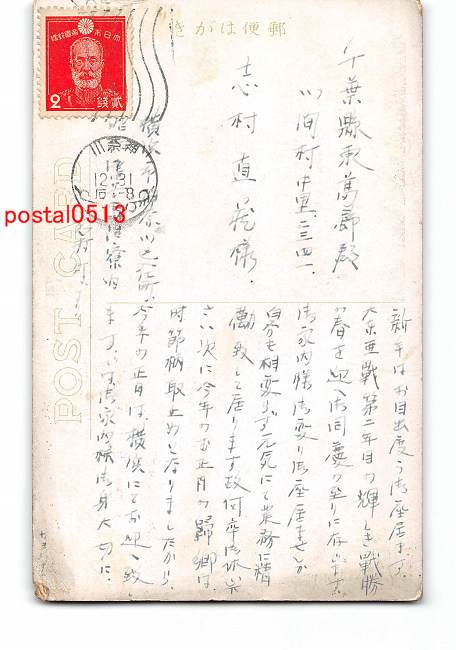 郵便はがき
大日本帝國郵便
2
貳錢
神奈川
12.31
后
POST CARD
postal0513
千葉縣東葛飾郡
川間村中里三四一
志村直
様
横
新年はお目出度う御座居ます。
大東亜戰第二年目の輝しき戰勝
の春を迎へ御同慶の至りに存じます。
御家内様御変り御座居ませんか
自分も相変らず元気にて業務に精
勵致して居ります故何卒御休心下
さい次に今年のお正月の歸郷は
時節柄取止めとなりましたから
今年の正月は横濱にてお迎へ致し
ます。御家内様御身大切に。